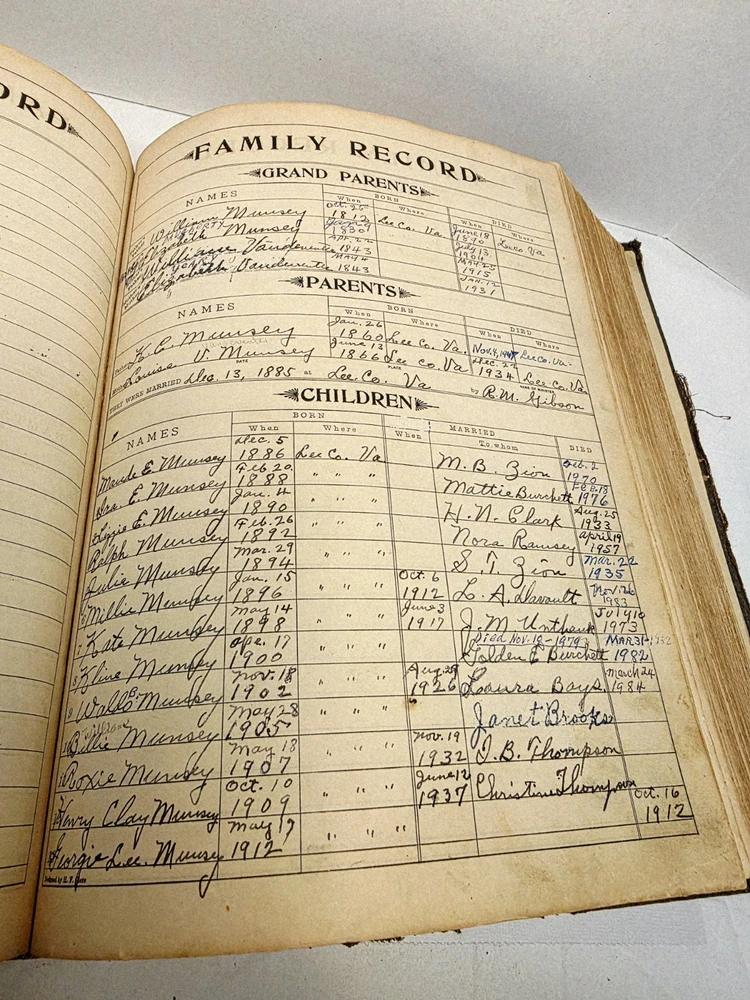 ORD
FAMILY RECORD
GRAND PARENTS
NAMES BORN DIED
When Where When Where
William Munsey Oct. 26 1812 Lee Co. Va June 18 1890 Lee Co. Va
Elizabeth Munsey 1830 July 13 1904
William Vandeventer 1843 1915
Elizabeth Vandeventer May 4 1843 Jan. 12 1931
PARENTS
NAMES BORN DIED
When Where When Where
H. C. Munsey Jan. 26 1860 Lee Co. Va. Nov. 4, Lee Co. Va.
Louise V. Munsey June 13 1866 Lee Co. Va. Dec. 1934 Lee Co. Va.
THEY WERE MARRIED DATE Dec. 13, 1885 at PLACE Lee. Co. Va by R. M. Gibson
CHILDREN
NAMES BORN MARRIED DIED
When Where When To whom
Maude E. Munsey Dec. 5 1886 Lee Co. Va M. B. Zion Oct. 2 1970
Ora E. Munsey Feb 20. 1888 " " " Mattie Burchett Feb. 18 1976
Lizzie E. Munsey Jan. 4 1890 " " " H. N. Clark Aug. 25 1933
Ralph Munsey Feb. 26 1892 " " " Nora Ramsey April 19 1957
Julie Munsey Mar. 29 1894 " " " S. T. Zion Mar. 22 1935
Millie Munsey Jan. 15 1896 " " " Oct. 6 1912 L. A. Davault Nov. 26 1983
Kate Munsey May 14 1898 " " " June 3 1917 J. M. Unthank July 10 1973
Died Nov. 19 - 1979
Kline Munsey Apr. 17 1900 " " " Golden E Burchett Mar 31 - 1982
Waldo B. Munsey Nov. 18 1902 " " " Aug. 28 1926 Laura Bays March 24 1984
William
Billie Munsey May 28 1905 " " " Janet Brooks
Roxie Munsey May 18 1907 " " " Nov. 19 1932 J. B. Thompson
Henry Clay Munsey Oct. 10 1909 " " " June 12 1937 Christine Thompson
Georgie Lee. Munsey May 17 1912 " " " Oct. 16 1912